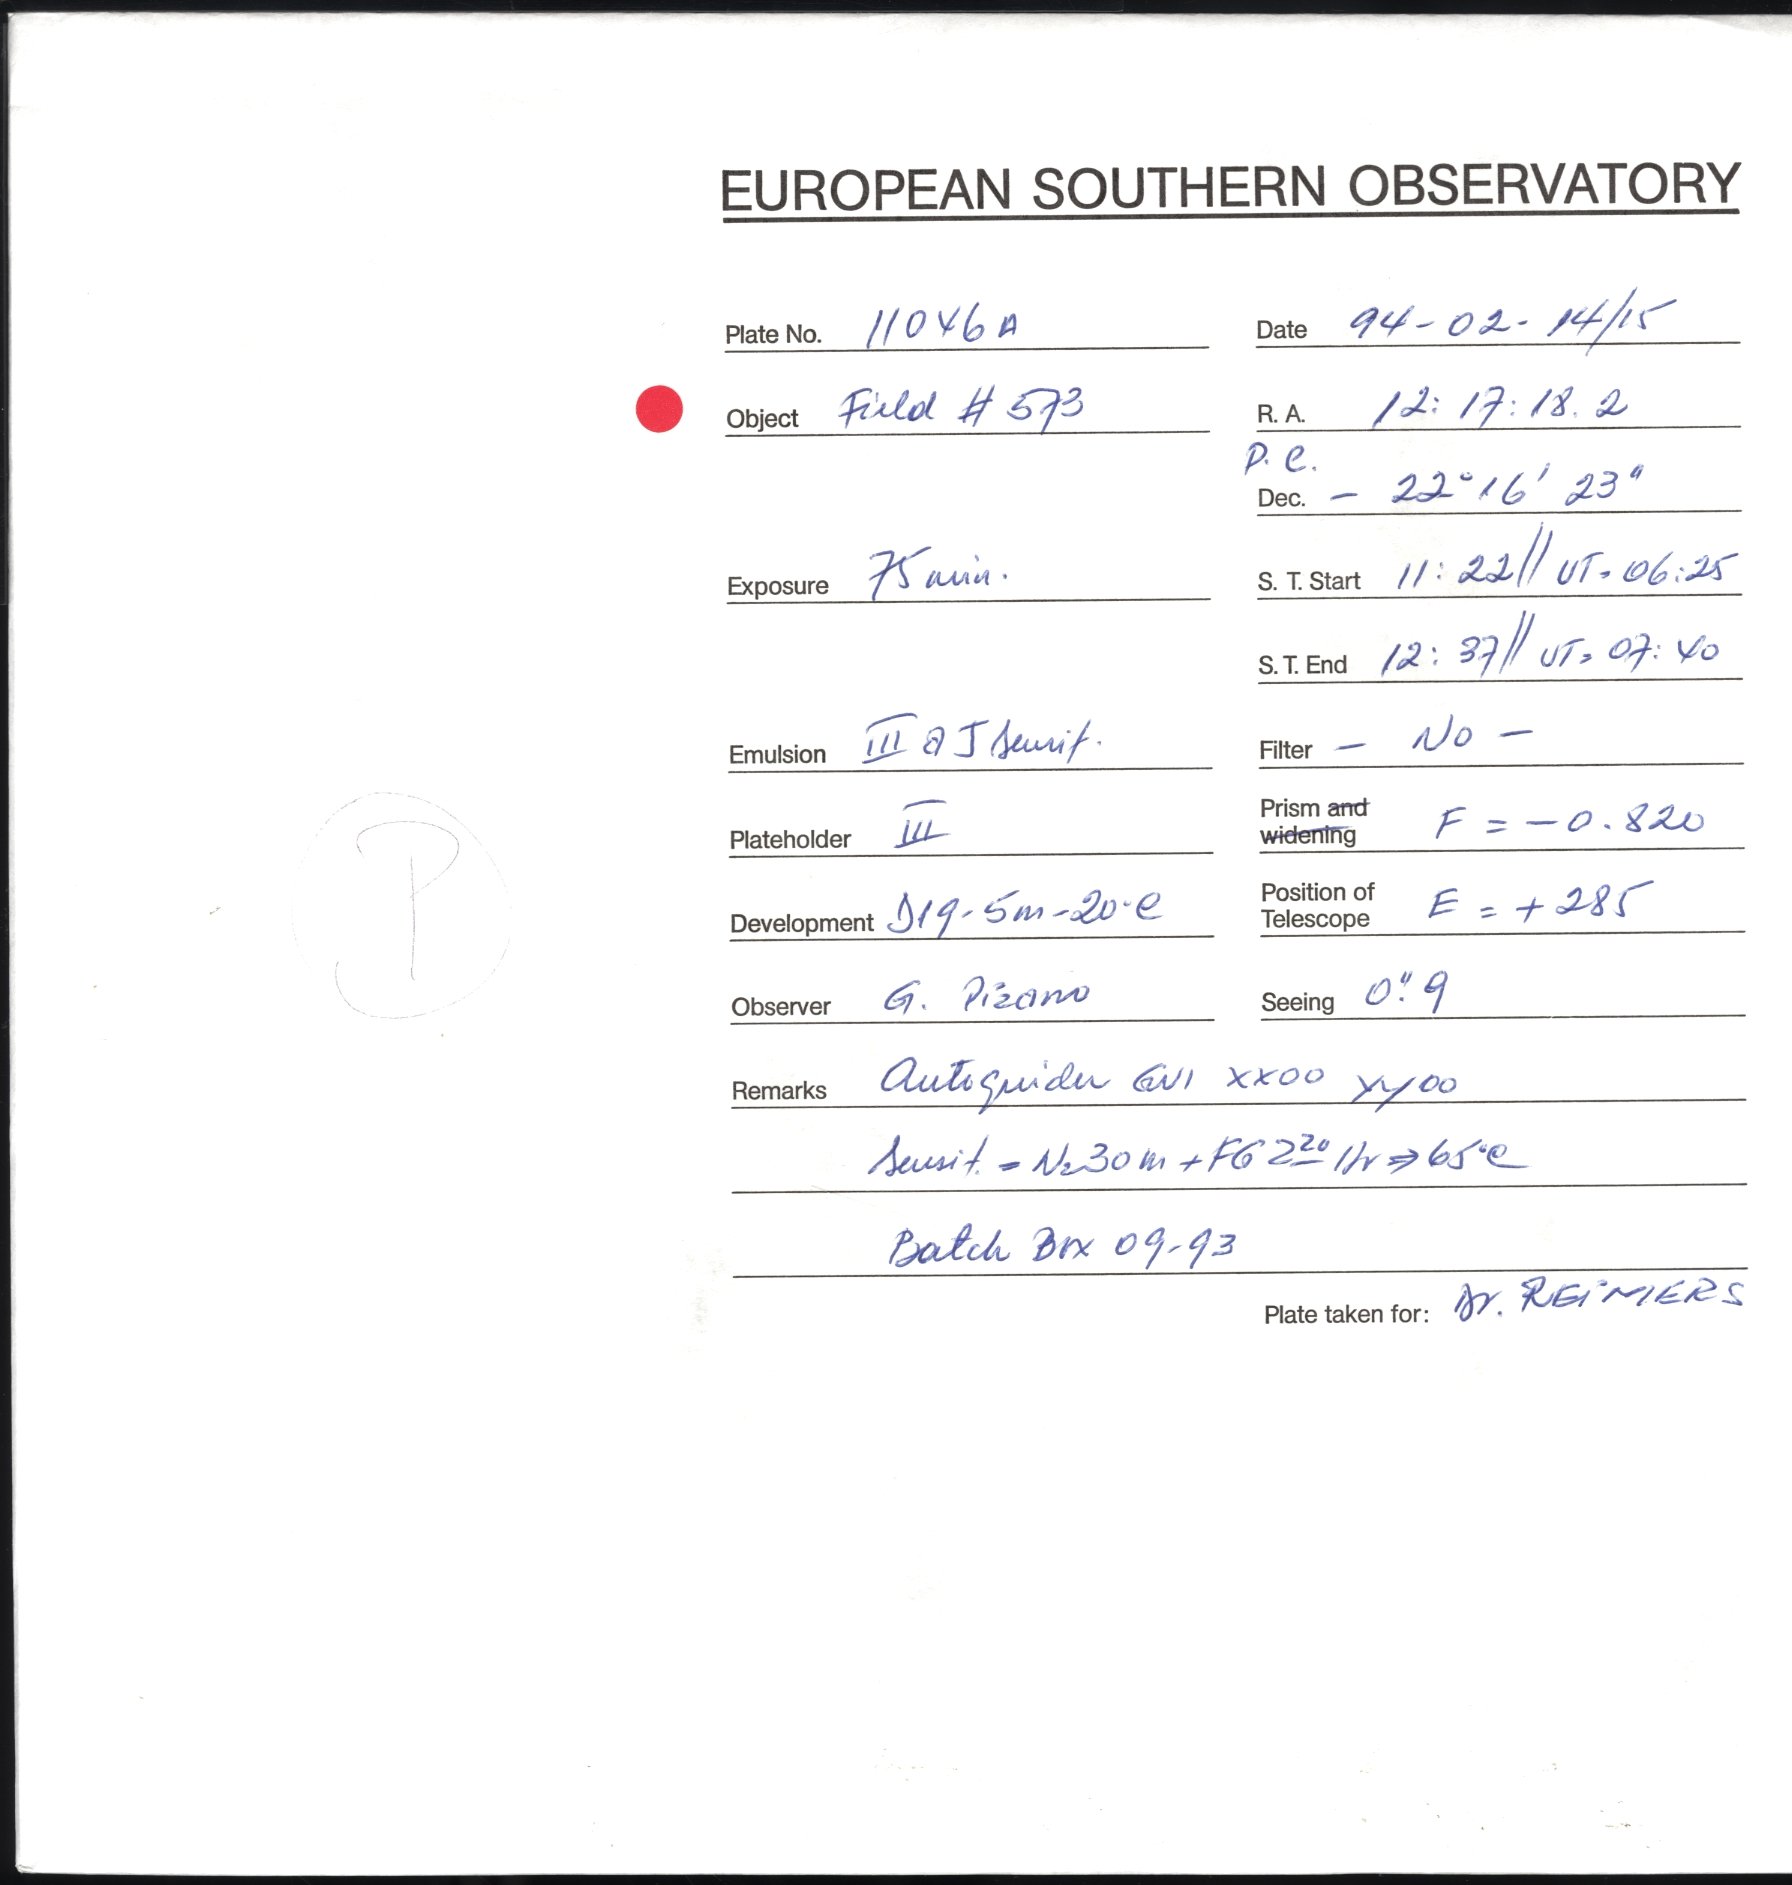 EUROPEAN SOUTHERN OBSERVATORY
Plate No. 11046A Date 94-02-14/15
Object Field # 573 R. A. 12:17:18.2
P. C.
Dec. - 22° 16' 23"
Exposure 75 min. S. T. Start 11:22// UT= 06:25
S. T. End 12:37// UT= 07:40
Emulsion III a J Sensit. Filter - No -
Prism and
Plateholder III widening F = -0.820
Position of
Development D19-5m-20°C Telescope E = +285
Observer G. Pizarro Seeing 0".9
Remarks Autoguider XX00 YY00
Sensit. = N2 30m + FG 2 20 Hr ⇒ 65°C
Batch Box 09-93
Plate taken for: Dr. REIMERS
P